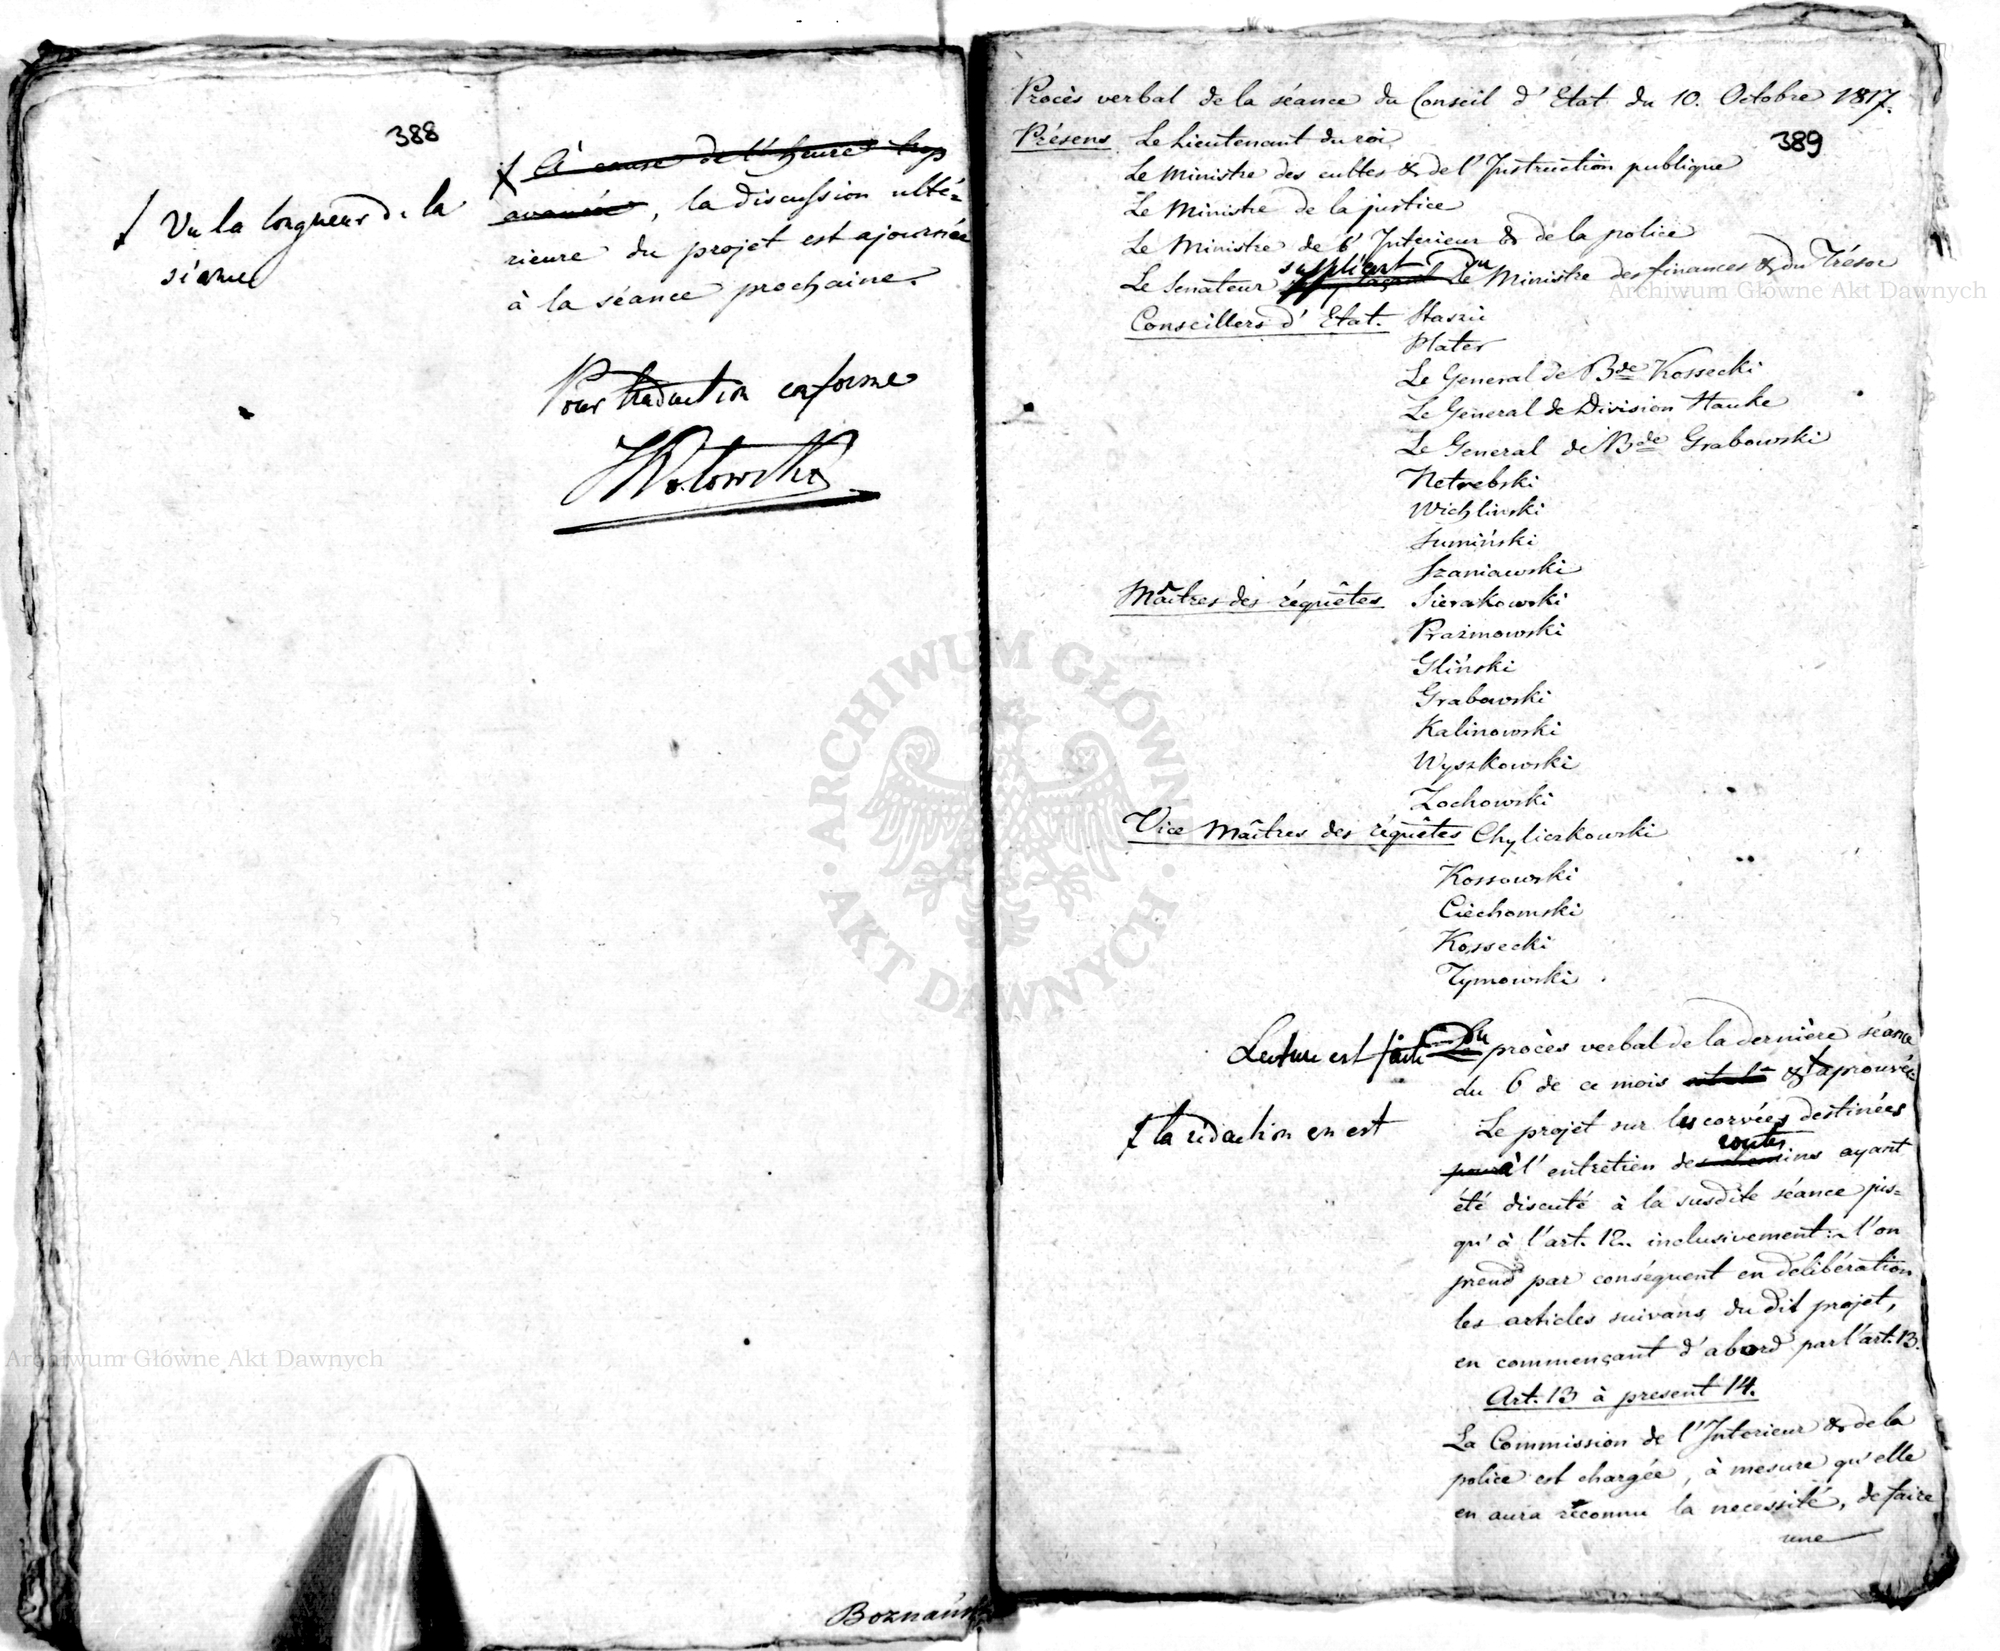 388
ƚ Vu la longueur de la
séance
ƚ À cause de l'heure trop
avancée, la discussion ulté=
rieure du projet est ajournée
à la séance prochaine.
Pour traduction conforme
Boznańsk
Procès verbal de la séance du Conseil d'Etat du 10. Octobre 1817.
389
Présens Le Lieutenant du roi
Le Ministre des cultes & de l'Instruction publique
Le Ministre de la justice
Le Ministre de l'Interieur & de la police
suppléant du
Le Senateur remplaçant le Ministre des finances & du Trésor
Conseillers d'Etat. Staszic
Plater
Le General de Bde Kossecki
Le General de Division Hauke
Le General de Bde Grabowski
Netrebski
Wichliński
Sumiński
Szaniawski
Maîtres des réquêtes Sierakowski
Prażmowski
Gliński
Grabowski
Kalinowski
Wyszkowski
Zochowski
Vice Maîtres des réquêtes Chyliczkowski
Kossowski
Ciechomski
Kossecki
Tymowski
Lecture est faite Du procès verbal de la dernière séance
du 6 de ce mois & ƚ aprouvée
ƚ la rédaction en est
Le projet sur les corvées destinées
routes
pour à l'entretien des chemins ayant
été discuté à la susdite séance jus=
qu'à l'art. 12. inclusivement: l'on
prend par conséquent en délibération
les articles suivans du dit projet,
en commençant d'abord par l'art. 13.
Art. 13 à present 14.
La Commission de l'Interieur & de la
police est chargée, à mesure qu'elle
en aura reconnu la necessité, de faire
une
Archiwum Główne Akt Dawnych
Archiwum Główne Akt Dawnych
ARCHIWUM GŁÓWNE AKT DAWNYCH